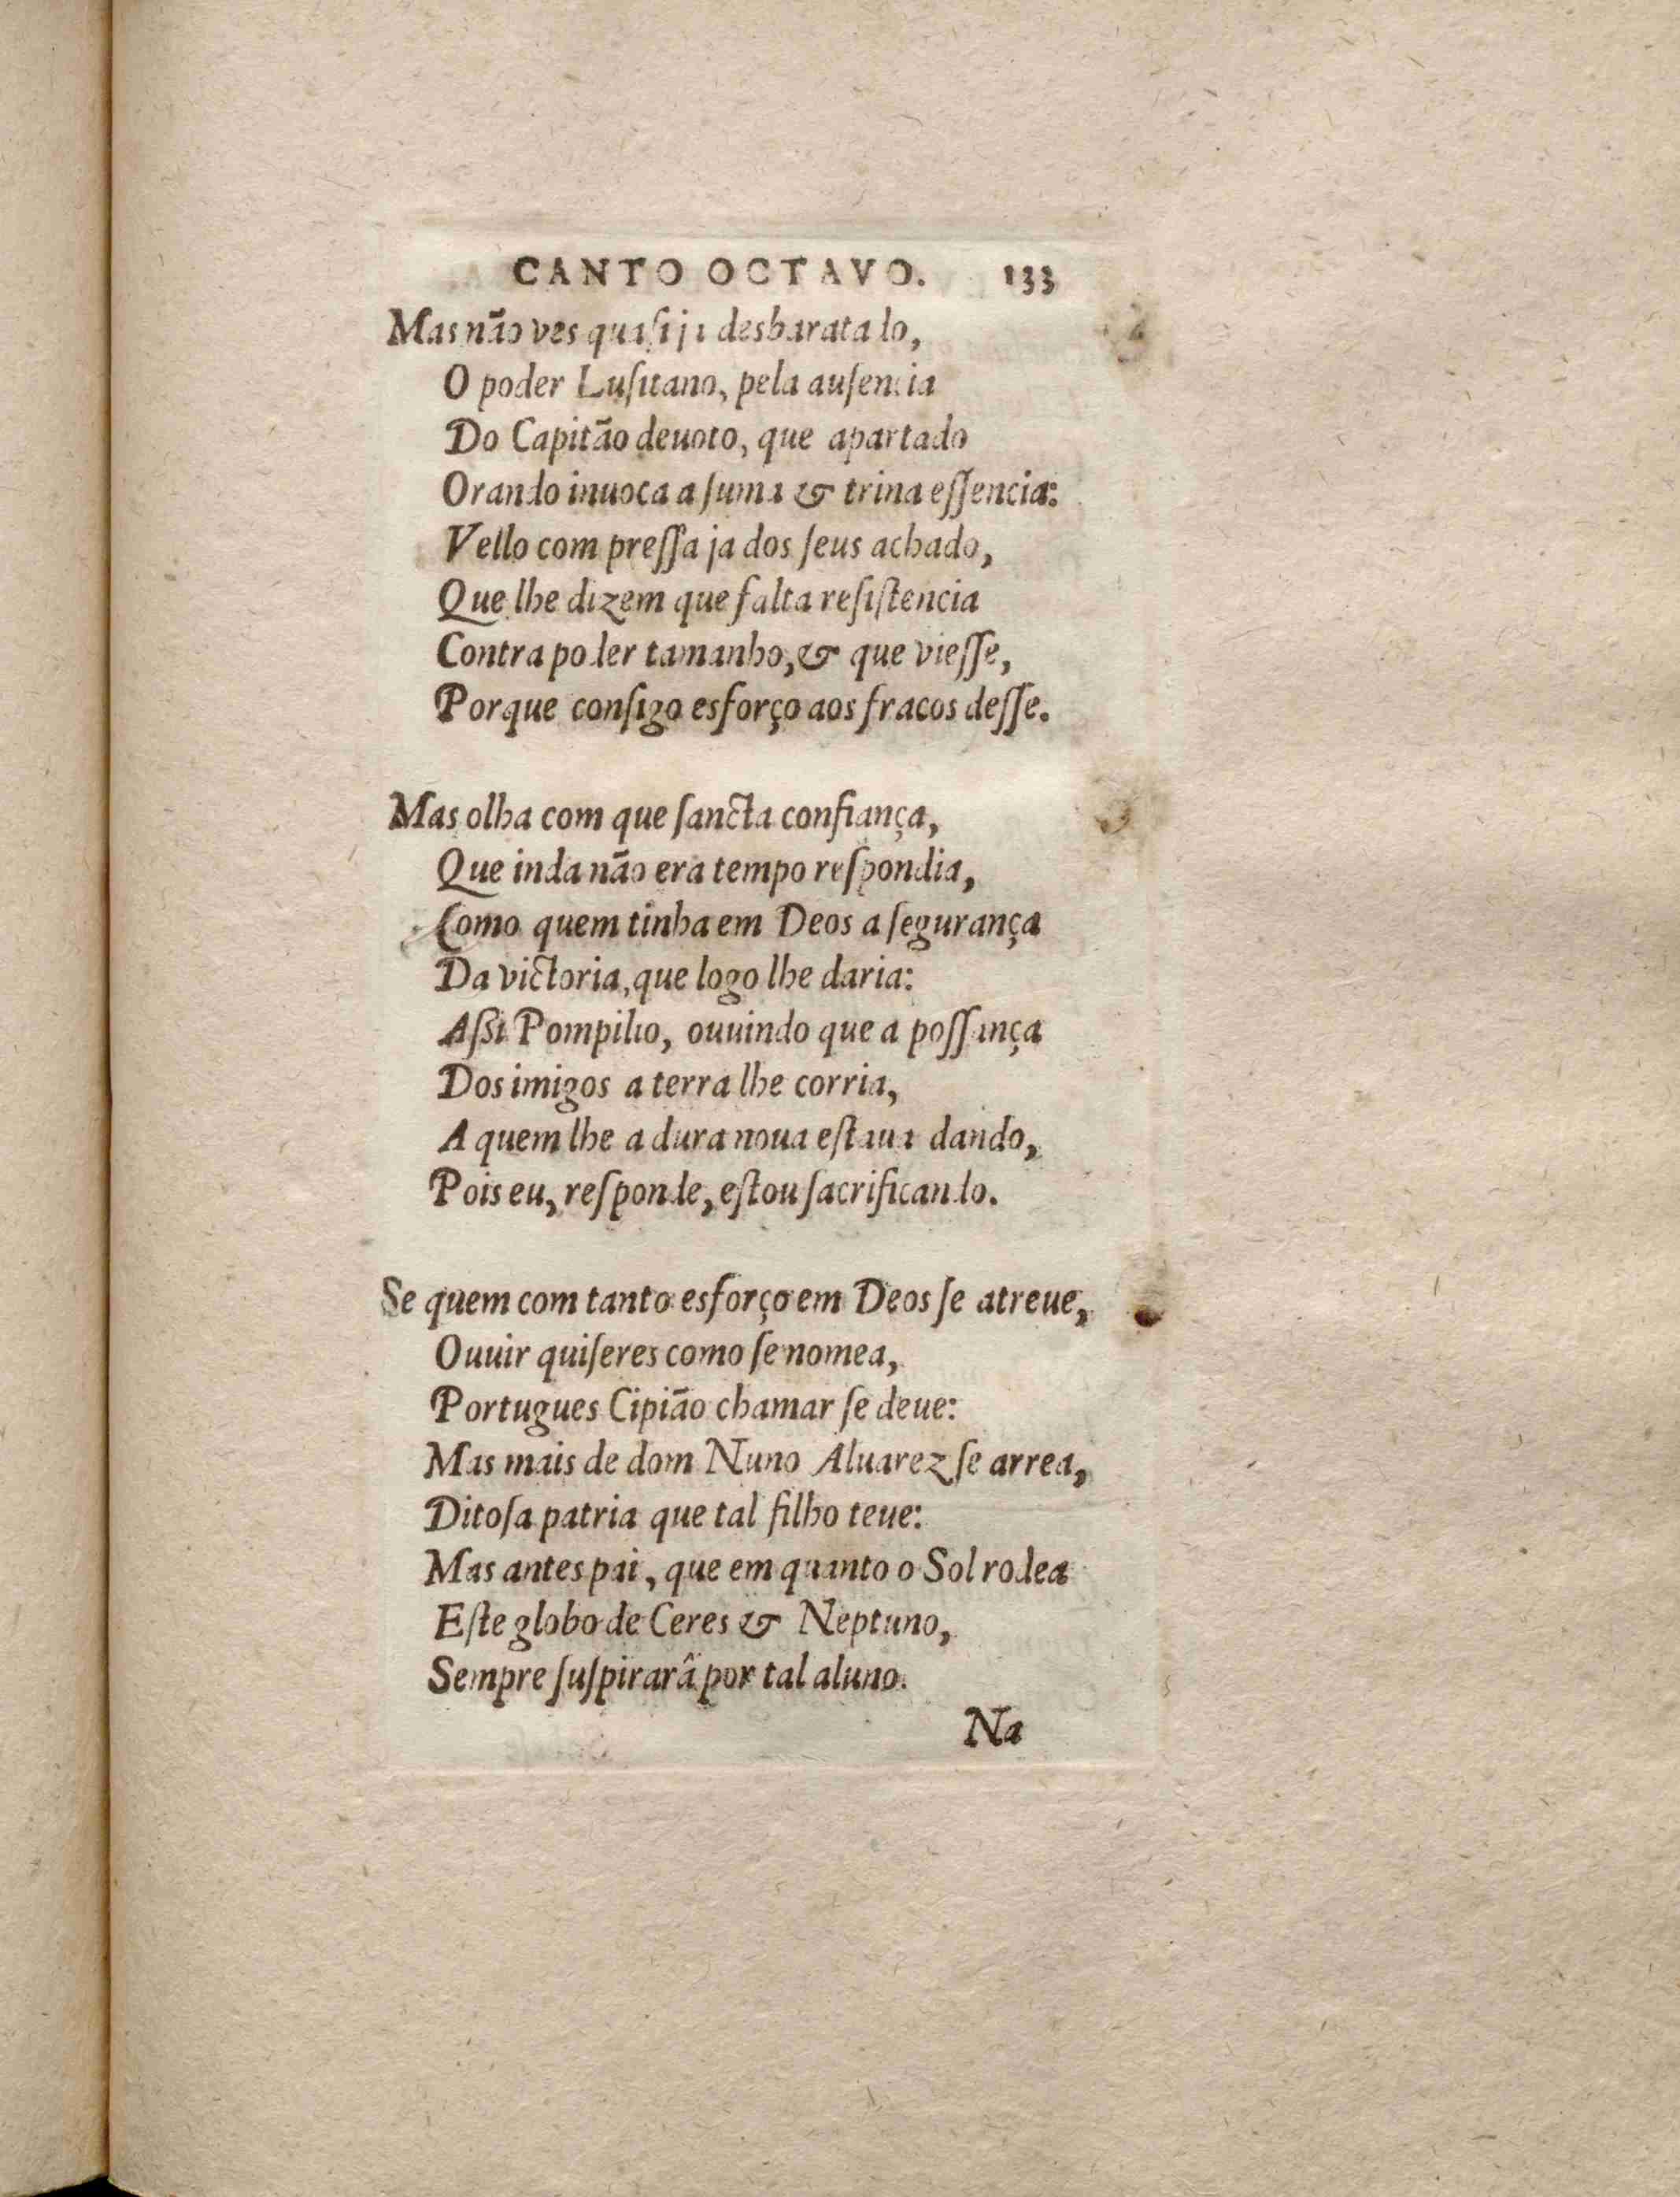 CANTO OCTAVO. 133
Mas não ves quaſi ja desbaratado,
O poder Luſitano, pela auſencia
Do Capitão deuoto, que apartado
Orando inuoca a ſuma & trina eſſencia:
Vello com preſſa ja dos ſeus achado,
Que lhe dizem que falta reſiſtencia
Contra poder tamanho, & que vieſſe,
Porque conſigo esforço aos fracos deſſe.
Mas olha com que ſancta confiança,
Que inda não era tempo reſpondia,
Como quem tinha em Deos a ſegurança
Da victoria, que logo lhe daria:
Aßi Pompilio, ouuindo que a poſſança
Dos imigos a terra lhe corria,
A quem lhe a dura noua eſtaua dando,
Pois eu, reſponde, eſtou ſacrificando.
Se quem com tanto esforço em Deos ſe atreue,
Ouuir quiſeres como ſe nomea,
Portugues Cipião chamar ſe deue:
Mas mais de dom Nuno Aluarez ſe arrea,
Ditoſa patria que tal filho teue:
Mas antes pai, que em quanto o Sol rodea
Eſte globo de Ceres & Neptuno,
Sempre ſuſpirarâ por tal aluno.
Na